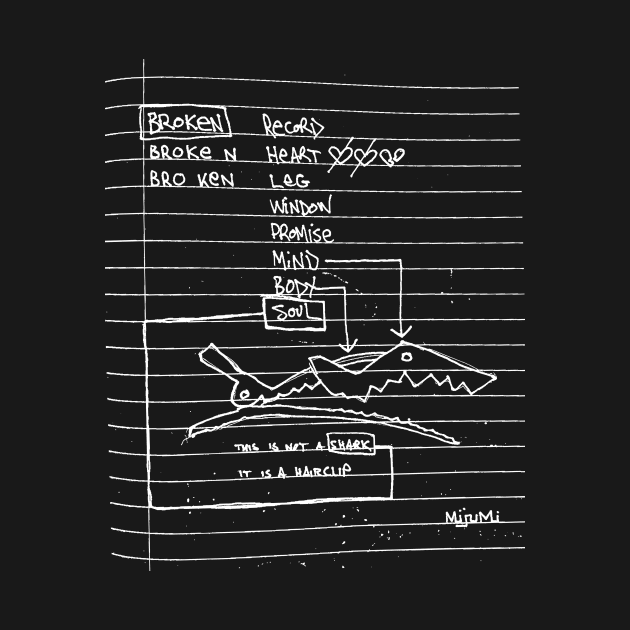 BROKEN RECORD
BROKE N HEART
BRO KEN LEG
WINDOW
PROMISE
MIND
BODY
SOUL
THIS IS NOT A SHARK
IT IS A HAIRCLIP
MijuMi